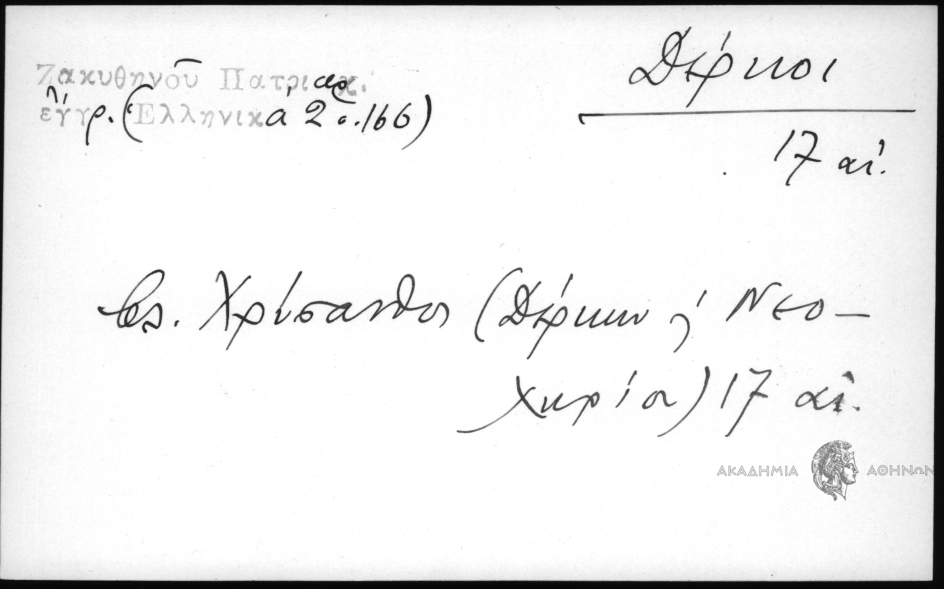 Ζακυθηνοῦ Πατριαρχ.
ἔγγρ. (Ἑλληνικά 2 σ. 166)
Δέρκοι
17 αἰ.
Χρύσανθος (Δέρκων ἤ Νεο-
χωρίου) 17 αἰ.
ΑΚΑΔΗΜΙΑ ΑΘΗΝΩΝ